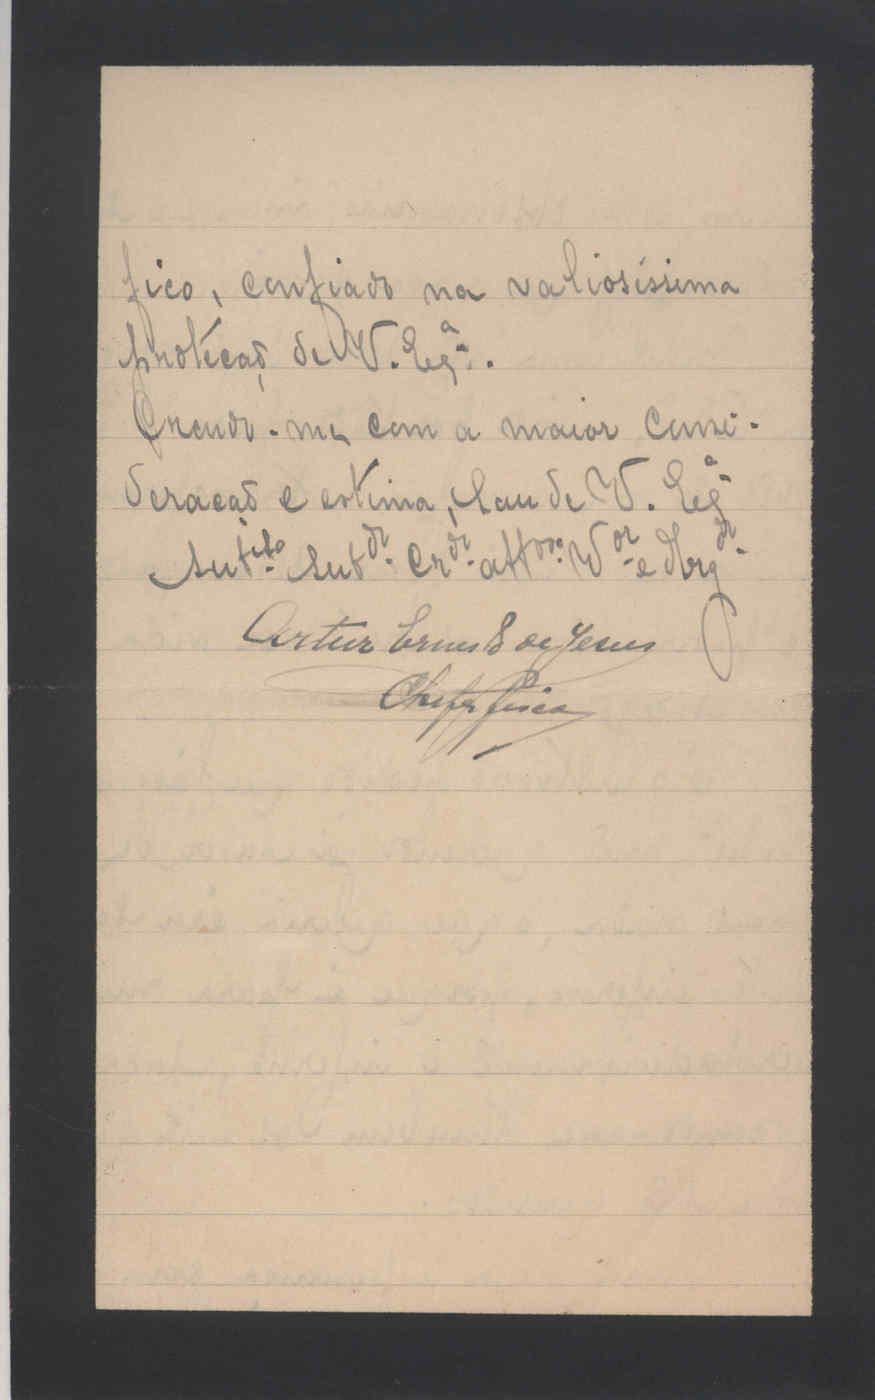 fico, confiado na valiosíssima
protécaõ de V. Exª.
Crendo-me, com a maior consi-
deracaõ e estima, sou de V. Exª
subdº. Crdº. attº. Vor e Obrgdº.
Artur Ernesto de Jesus
Chefe